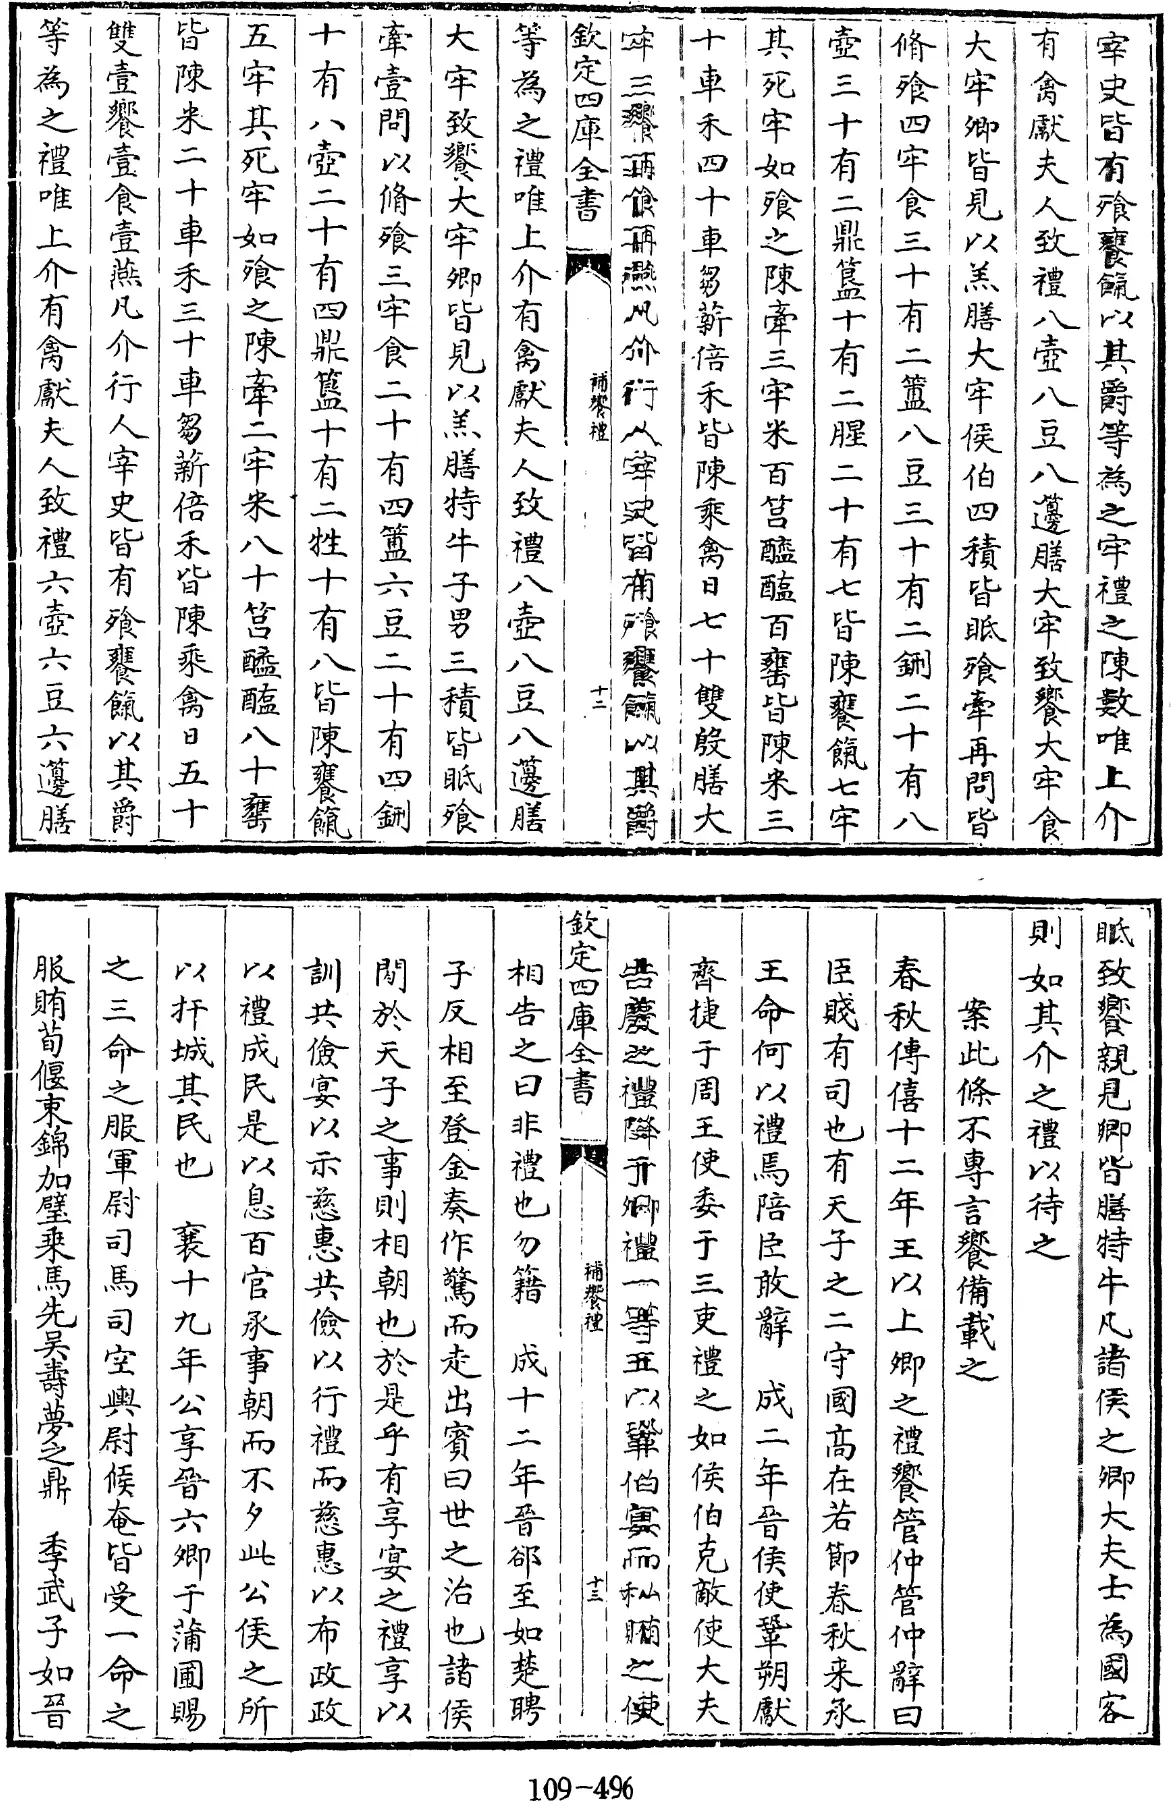 宰史皆有飱饔餼以其爵等為之牢禮之陳數唯上介
有禽獻夫人致禮八壺八豆八籩膳大牢致饗大牢食
大牢卿皆見以羔膳大牢侯伯四積皆眡飱牽再問皆
脩飱四牢食三十有二簠八豆三十有二鉶二十有八
壺三十有二鼎簋十有二腥二十有七皆陳饔餼七牢
其死牢如飱之陳牽三牢米百筥醯醢百罋皆陳米三
十車禾四十車芻薪倍禾皆陳乘禽日七十雙殷膳大
牢三饗再食再燕凡介行人宰史皆有飱饔餼以其爵
欽定四庫全書
補饗禮
十二
等為之禮唯上介有禽獻夫人致禮八壺八豆八籩膳
大牢致饗大牢卿皆見以羔膳特牛子男三積皆眡飱
牽壹問以脩飱三牢食二十有四簠六豆二十有四鉶
十有八壺二十有四鼎簋十有二牲十有八皆陳饔餼
五牢其死牢如飱之陳牽二牢米八十筥醯醢八十罋
皆陳米二十車禾三十車芻薪倍禾皆陳乘禽日五十
雙壹饗壹食壹燕凡介行人宰史皆有飱饔餼以其爵
等為之禮唯上介有禽獻夫人致禮六壺六豆六籩膳
眡致饗親見卿皆膳特牛凡諸侯之卿大夫士為國客
則如其介之禮以待之
案此條不專言饗備載之
春秋傳僖十二年王以上卿之禮饗管仲管仲辭曰
臣賤有司也有天子之二守國高在若節春秋来承
王命何以禮焉陪臣敢辭　成二年晉侯使鞏朔獻
齊捷于周王使委于三吏禮之如侯伯克敵使大夫
告慶之禮降于卿禮一等王以鞏伯宴而私賄之使
欽定四庫全書
補饗禮
十三
相告之曰非禮也勿籍　成十二年晉郤至如楚聘
子反相至登金奏作驚而走出賓曰世之治也諸侯
閒於天子之事則相朝也於是乎有享宴之禮享以
訓共儉宴以示慈惠共儉以行禮而慈惠以布政政
以禮成民是以息百官承事朝而不夕此公侯之所
以扞城其民也　襄十九年公享晉六卿于蒲圃賜
之三命之服軍尉司馬司空輿尉候奄皆受一命之
服賄荀偃束錦加璧乘馬先吳壽夢之鼎　季武子如晉
109-496